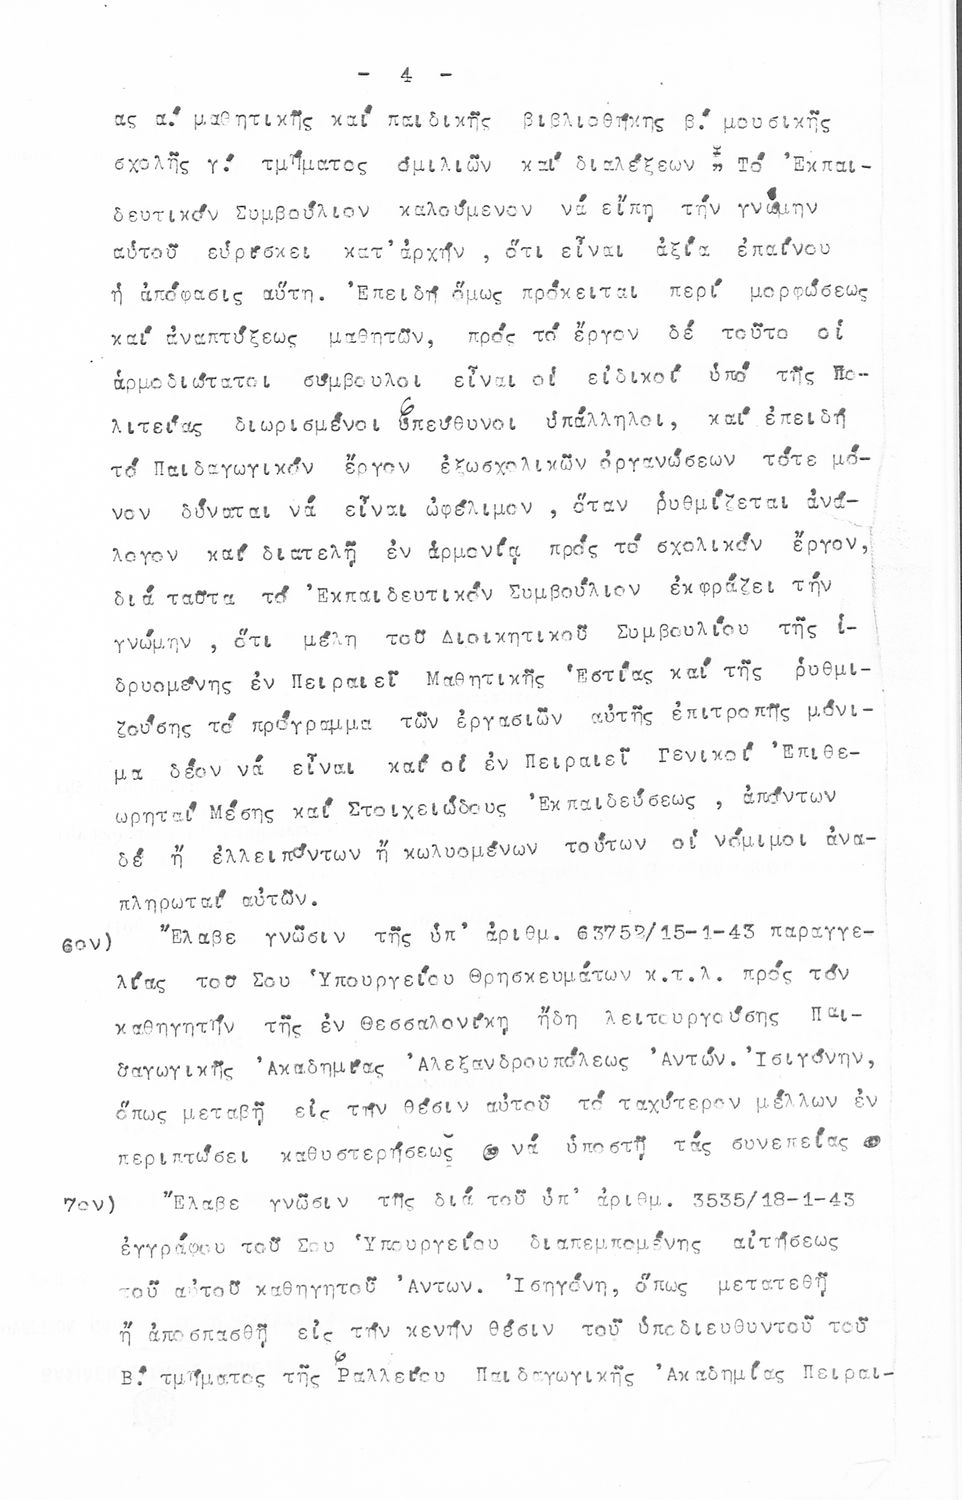 - 4 -
ας α! μαθητικῆς καί παιδικῆς βιβλιοθήκης β! μουσικῆς
σχολῆς γ! τμήματος ὁμιλιῶν καί διαλέξεων " Τό Ἐκπαι-
δευτικόν Συμβούλιον καλούμενον νά εἴπῃ τήν γνώμην
αὐτοῦ εὑρίσκει κατ' ἀρχήν , ὅτι εἶναι ἀξία ἐπαίνου
ἡ ἀπόφασις αὕτη. Ἐπειδή ὅμως πρόκειται περί μορφώσεως
καί ἀναπτύξεως μαθητῶν, πρός τό ἔργον δέ τοῦτο οἱ
ἁρμοδιώτατοι σύμβουλοι εἶναι οἱ εἰδικοί ὑπό τῆς Πο-
λιτείας διωρισμένοι ὑπεύθυνοι ὑπάλληλοι, καί ἐπειδή
τό Παιδαγωγικόν ἔργον ἐξωσχολικῶν ὀργανώσεων τότε μό-
νον δύναται νά εἶναι ὠφέλιμον , ὅταν ῥυθμίζεται ἀνά-
λογον καί διατελῇ ἐν ἁρμονίᾳ πρός τό σχολικόν ἔργον,
διά ταῦτα τό Ἐκπαιδευτικόν Συμβούλιον ἐκφράζει τήν
γνώμην , ὅτι μέλη τοῦ Διοικητικοῦ Συμβουλίου τῆς ἱ-
δρυομένης ἐν Πειραιεῖ Μαθητικῆς Ἑστίας καί τῆς ῥυθμι-
ζούσης τό πρόγραμμα τῶν ἐργασιῶν αὐτῆς ἐπιτροπῆς μόνι-
μα δέον νά εἶναι καί οἱ ἐν Πειραιεῖ Γενικοί Ἐπιθε-
ωρηταί Μέσης καί Στοιχειώδους Ἐκπαιδεύσεως , ἀπόντων
δέ ἤ ἐλλειπόντων ἤ κωλυομένων τούτων οἱ νόμιμοι ἀνα-
πληρωταί αὐτῶν.
6ον) Ἔλαβε γνῶσιν τῆς ὑπ' ἀριθμ. 63752/15-1-43 παραγγε-
λίας τοῦ Σου Ὑπουργείου Θρησκευμάτων κ.τ.λ. πρός τόν
καθηγητήν τῆς ἐν Θεσσαλονίκῃ ἤδη λειτουργούσης Παι-
δαγωγικῆς Ἀκαδημίας Ἀλεξανδρουπόλεως Ἀντών. Ἰσιγόνην,
ὅπως μεταβῇ εἰς τήν θέσιν αὐτοῦ τό ταχύτερον μέλλων ἐν
περιπτώσει καθυστερήσεως νά ὑποστῇ τάς συνεπείας
7ον) Ἔλαβε γνῶσιν τῆς διά τοῦ ὑπ' ἀριθμ. 3535/18-1-43
ἐγγράφου τοῦ Σου Ὑπουργείου διαπεμπομένης αἰτήσεως
τοῦ αὐτοῦ καθηγητοῦ Ἀντων. Ἰσηγόνη, ὅπως μετατεθῇ
ἤ ἀποσπασθῇ εἰς τήν κενήν θέσιν τοῦ ὑποδιευθυντοῦ τοῦ
Β! τμήματος τῆς Ῥαλλείου Παιδαγωγικῆς Ἀκαδημίας Πειραι-